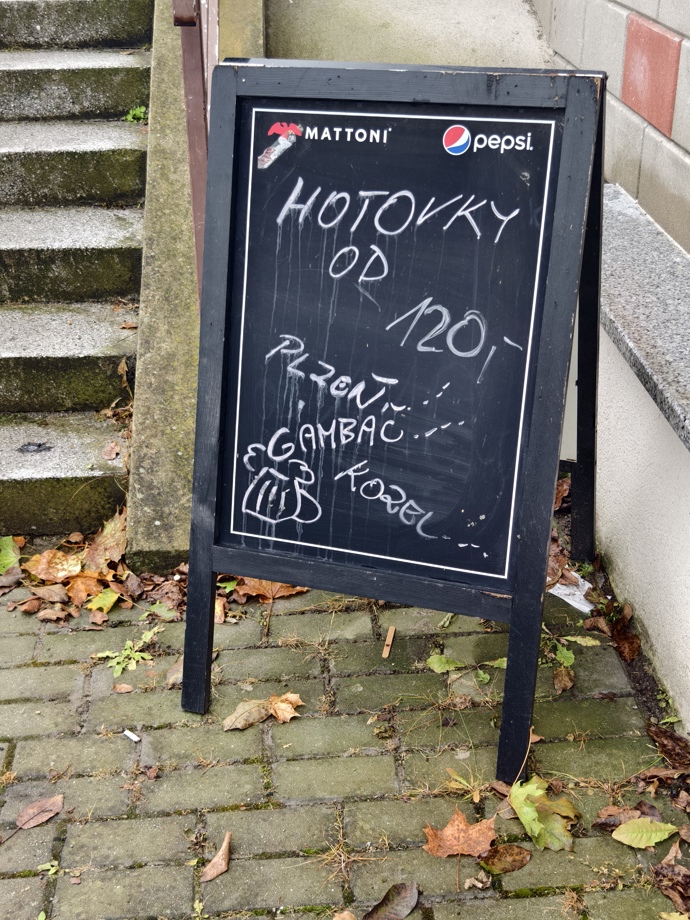 MATTONI
pepsi.
HOTOVKY
OD
120,-
PLZEŇ...
GAMBÁČ...
KOZEL...